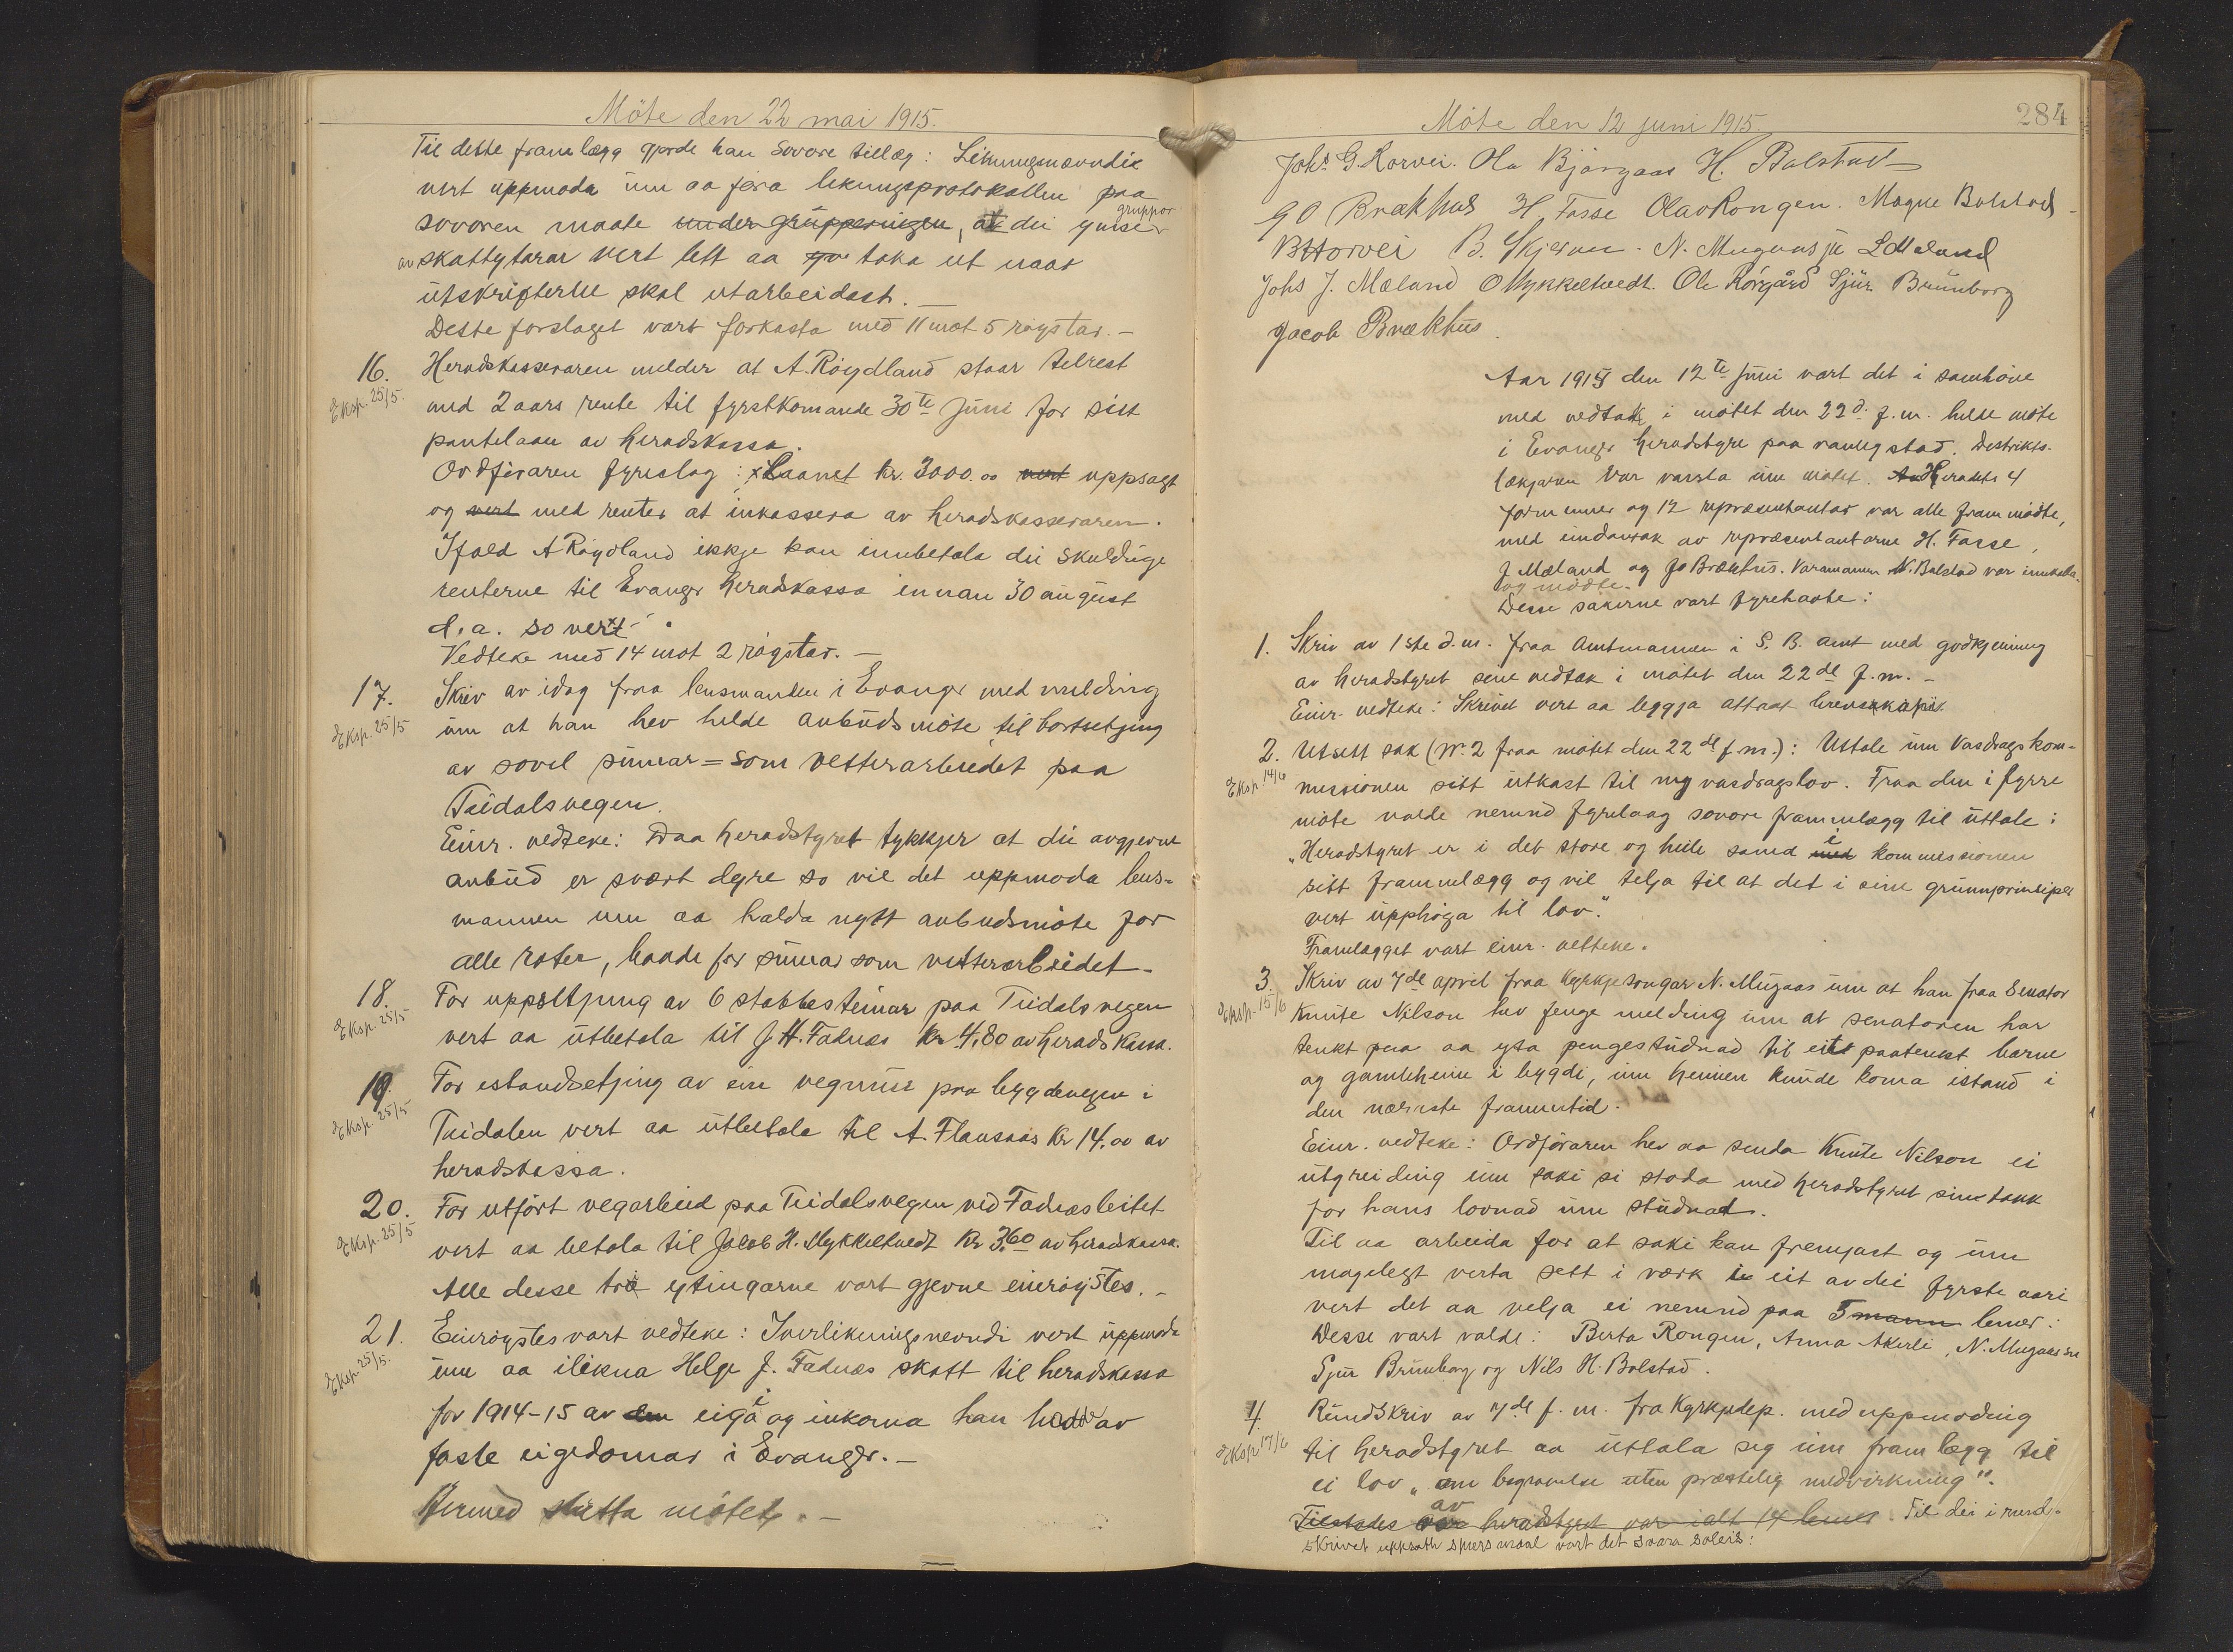 Möte den 22 mai 1915.
Til dette framlegg gjorde han sovore tillæg: Likningsnevndie
vert uppmoda um aa föra likningsprotokollen paa
sovoren maate under grupperingen, at dei ymse grupper
av skattytarar vert lett aa taka ut naar
utskrifterne skal utarbeidast. —
Dette forslaget vart forkasta med 11 mot 5 röystar. —
16. Heradskasseraren melder at A. Röydland staar tilrest
Eksp. 25/5. med 2 aars rente til fyrstkomande 30te juni for sitt
pantelaan av heradskassa.
Ordföraren fyreslog: x Laanet kr. 3000.00 vert uppsagt
og vert med renter at inkassera av heradskasseraren.
Ifald A Röydland ikkje kan innbetala dei skuldige
renterne til Evanger heradskassa innan 30 august
d. a. so vert x
Vedteke med 14 mot 2 röystar. —
17. Skriv av idag fraa lensmanden i Evanger med melding
Eksp. 25/5 um at han hev helde anbudsmöte til bortsetjing
av sovel sumar= som vetterarbeidet paa
Teidalsvegen.
Einr. vedteke: Daa heradstyret tykkjer at dei avgjevne
anbud er svært dyre so vil det uppmoda lens-
mannen um aa halda nytt anbudsmöte for
alle roter, baade for sumar som vetterarbeidet.
18. For uppsetjung av 6 stabbesteinar paa Teidalsvegen
Eksp. 25/5 vert aa utbetala til J. H. Fadnes kr. 4,80 av heradskassa.
19. For istandsetjing av ein vegmur paa bygdevegen i
Eksp. 25/5 Teidalen vert aa utbetala til A. Flausaas Kr 14.00 av
heradskassa.
20. For utfört vegarbeid paa Teidalsvegen ved Fadnesleitet
Eksp. 25/5 vert aa betala til Jakob H. Mykkeltvedt Kr 3.60 av heradskassa.
Alle desse tri ytingarne vart gjevne einröystes. —
21. Einröystes vart vedteke: Yverlikningsnevndi vert uppmoda
Eksp. 25/5. um aa ilikna Helge J. Fadnes skatt til heradskassa
for 1914-15 av den eiga i og inkoma han hadde av
faste eigedomar i Evanger. —
Hermed slutta mötet. —
Möte den 12 juni 1915. 284
Johs. G. Horvei. Ola Björgaas H. Bolstad
G O Brækhus H. Fasse Olav Rongen. Magne Bolstad
B Horvei B. Skjerven. N. Mugaas ju L Mæland
Johs J. Mæland O Mykkeltvedt. Ole Rörgård Sjur Brunborg
Jacob Brækhus.
Aar 1915 den 12te juni vart det i samhöve
med vedtak i mötet den 22d. f. m. helde möte
i Evanger heradstyre paa vanleg stad. Destrikts-
lækjaren var varsla um mötet. Av Heradets 4
formenner og 12 repræsentantar var alle frammödte,
med eindantak av repræsentantarne H. Fasse,
J. Mæland og Jo Brækhus. Varamannen N. Bolstad var innkalla
og mödte.
Desse sakerne vart fyrehavte:
1. Skriv av 1ste d.m. fraa Amtmannen i S. B. amt med godkjenning
av heradstyret sine vedtak i mötet den 22de f. m. —
Einr. vedteke: Skrivet vert aa leggja attaat brevskapi.
2. Utsett sak (Nr. 2 fraa mötet den 22de f. m.): Uttale um Vasdragskom-
Eksp. 14/6 missionen sitt utkast til ny vasdragslov. Fraa den i fyrre
möte valde nemnd fyrelaag sovore frammlegg til uttale:
„Heradstyret er i det store og heile samd med i kommissionen
sitt frammlægg og vil telja til at det i sine grunnprinsiper
vert upphöga til lov."
Framlegget vart einr. vetteke.
3. Skriv av 7de april fraa Kyrkjesongar N. Mugaas um at han fraa Senator
Eksp. 15/6 Knute Nilson hev fenge melding um at senatoren har
tenkt paa aa yta pengestudnad til eit paatenkt barne
og gamleheim i bygdi, um heimen kunde koma istand i
den nærmeste framtid.
Einr. vedteke: Ordföraren hev aa senda Knute Nilson ei
utgreiding um saki si stoda med heradstyret sin takk
for hans lovnad um studnad.
Til aa arbeida for at saki kan fremjast og um
mogelegt verta sett i værk i eit av dei fyrste aari
vert det aa velja ei nemnd paa 5 mann lemer:
Desse vart valde: Berta Rongen, Anna Akerli, N. Mugaas sn
Sjur Brunborg og Nils H. Bolstad.
4. Rundskriv av 7de f. m. fra Kyrkjedep. med uppmoding
Eksp. 17/6 til heradstyret aa uttala seg um framlegg til
ei lov „om begravelse uten præstelig medvirkning".
Tilstades var av heradstyret var ialt 14 lemer. Til dei i rund-
skrivet uppsatte spursmaal vart det svara soleis: